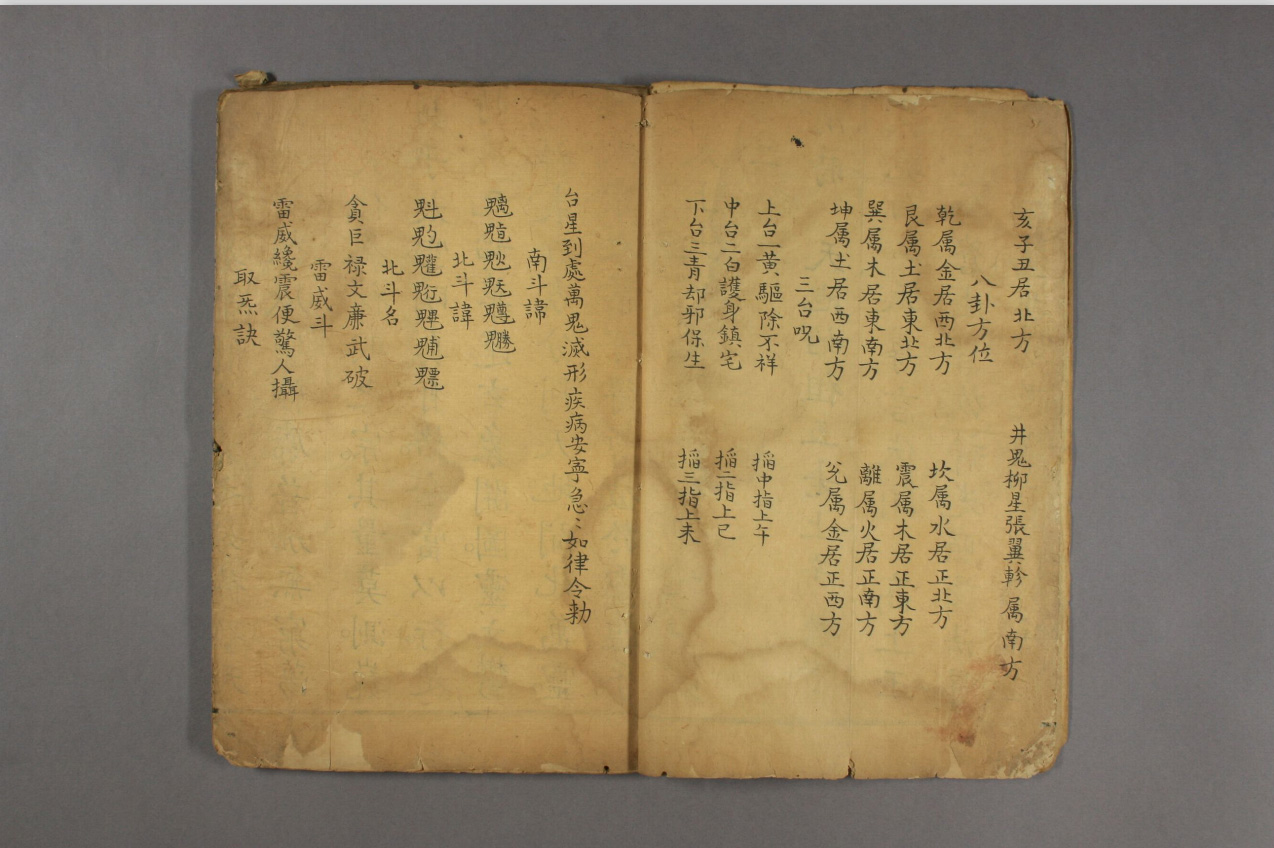 亥子丑居北方　井鬼柳星張翼軫属南方
八卦方位
乾属金居西北方　坎属水居正北方
艮属土居東北方　震属木居正東方
巽属木居東南方　離属火居正南方
坤属土居西南方　兊属金居正西方
三台呪
上台一黄驅除不祥　搯中指上午
中台二白護身鎮宅　搯二指上己
下台三青却邪保生　搯三指上未
台星到處萬鬼滅形疾病安寕急〻如律令勅
南斗諱
北斗諱
魁𩲃魓
北斗名
貪巨禄文亷武破
雷威斗
雷威纔震便驚人攝
取炁訣